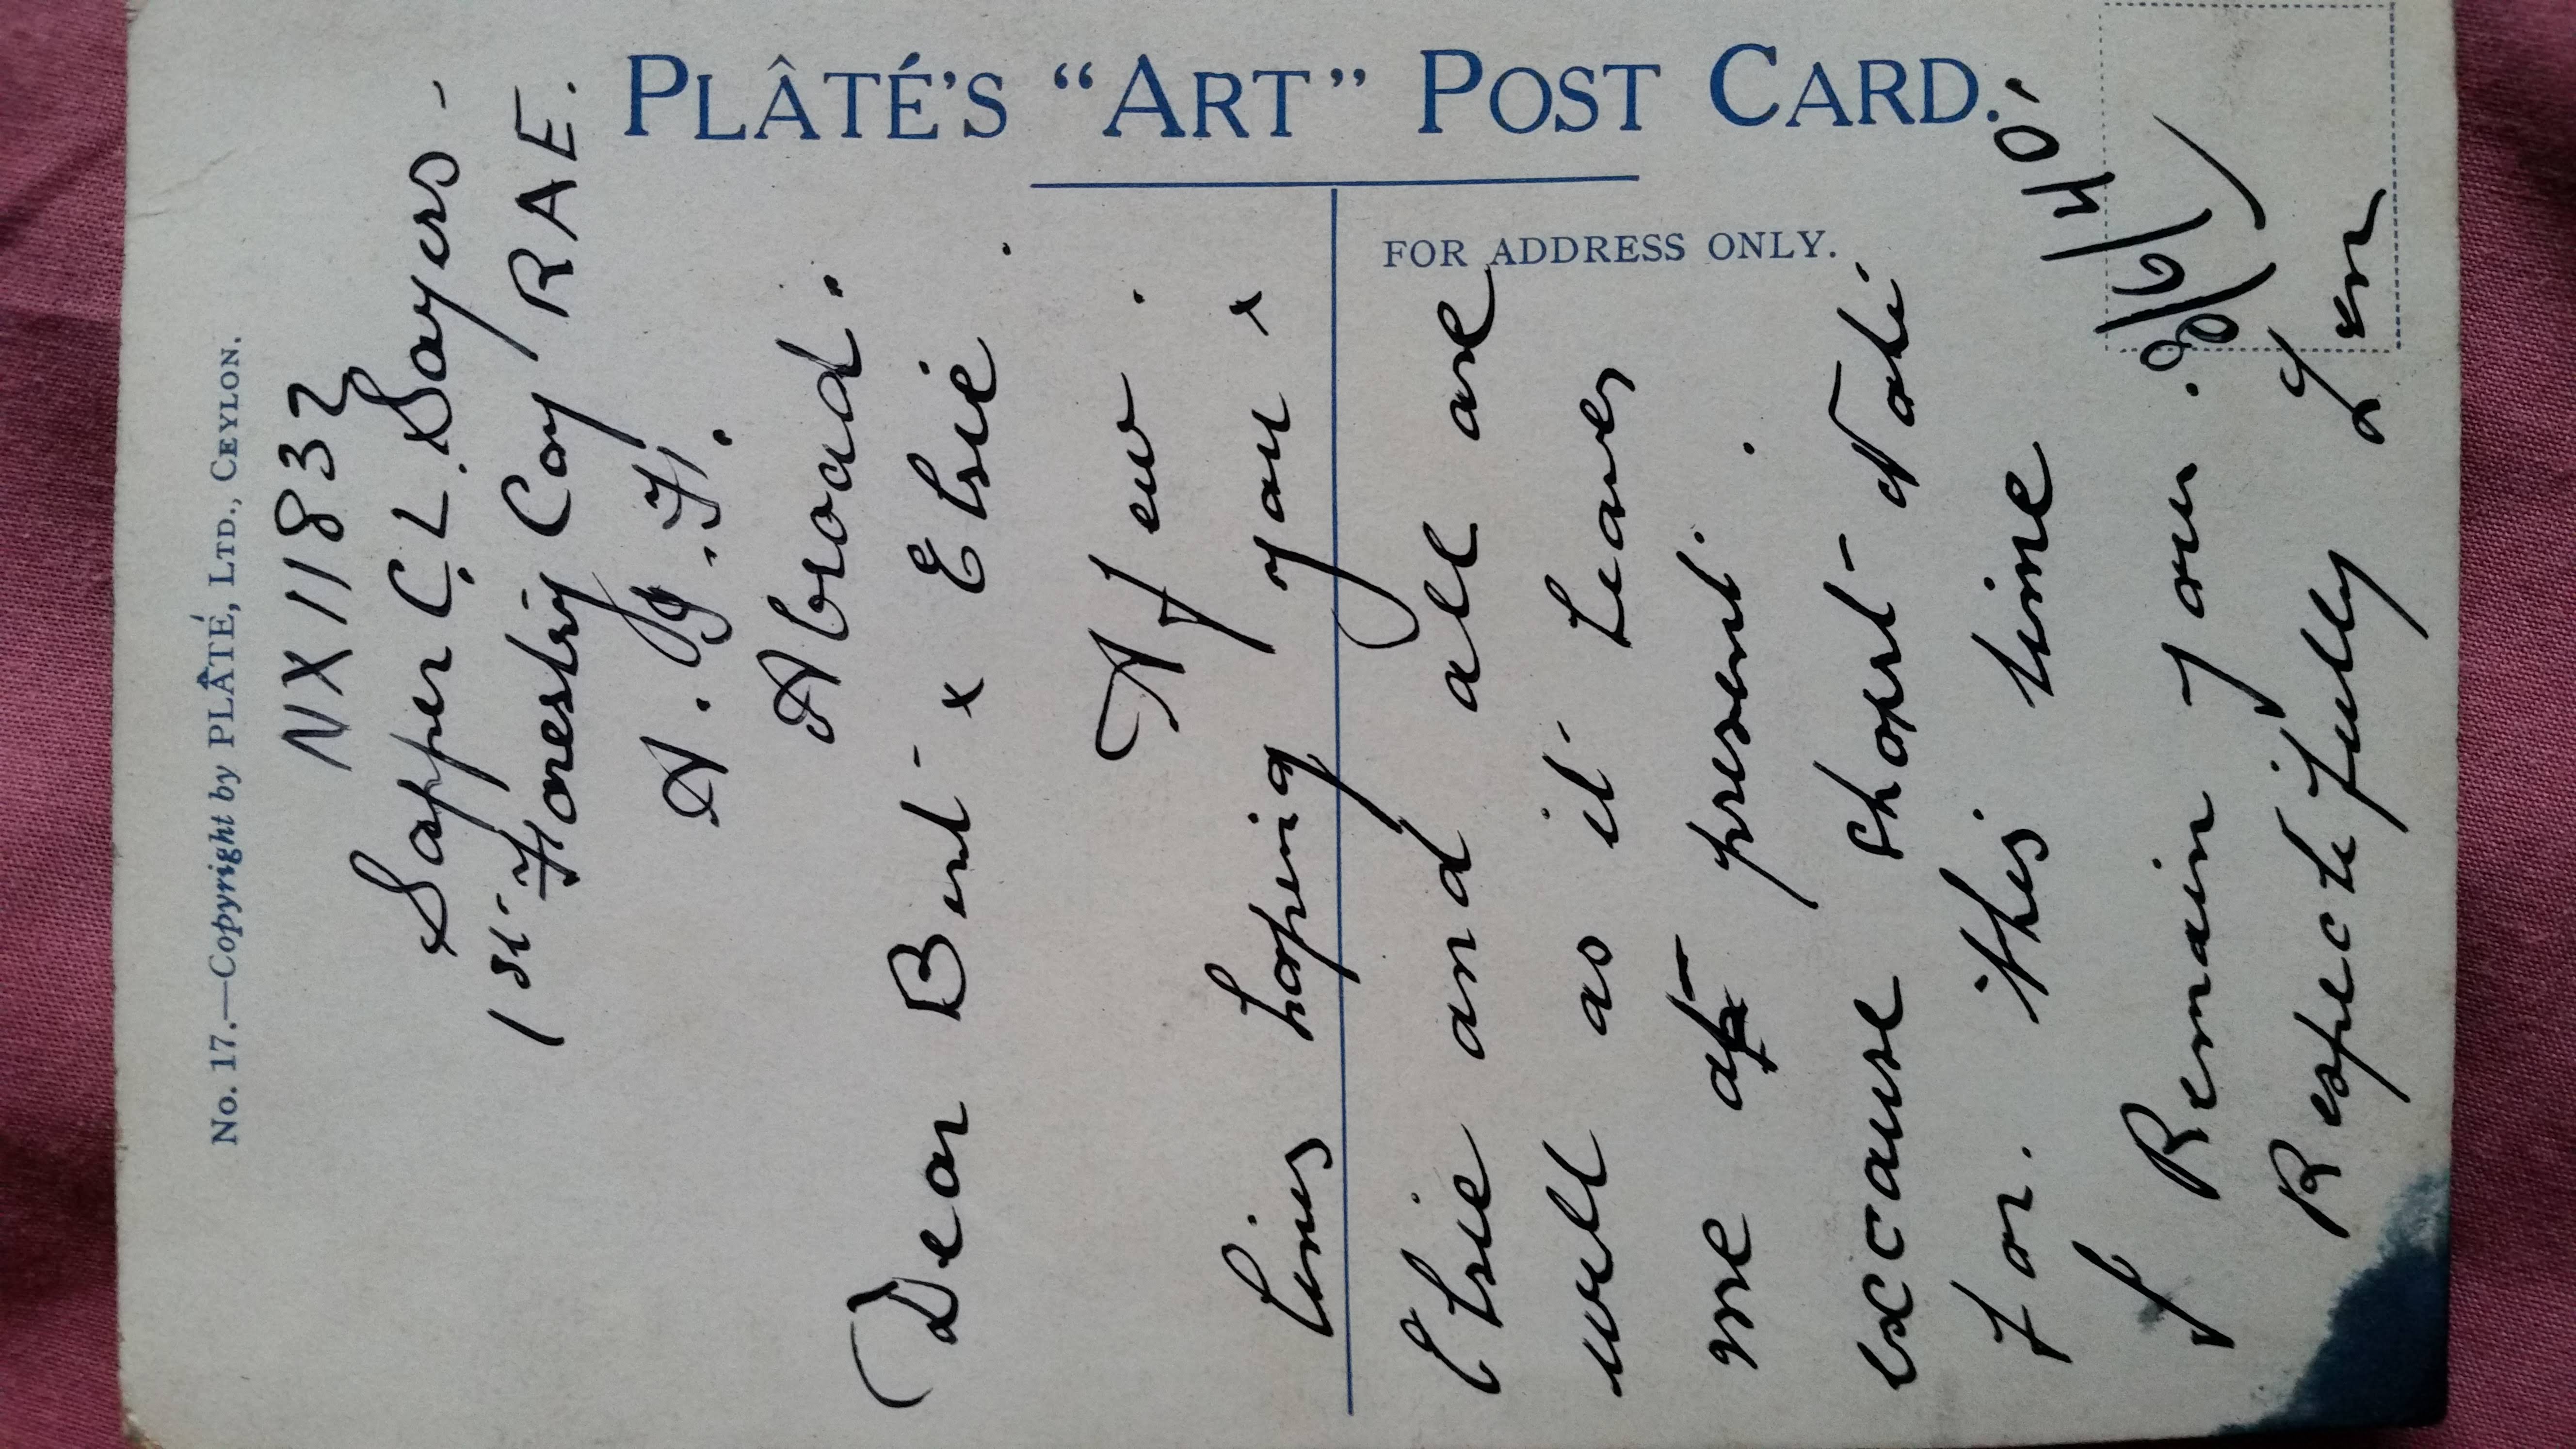 No. 17.—Copyright by PLÂTÉ, LTD., CEYLON.
NX 11832
Sapper C. L. Sayers -
1st Forestry Coy RAE.
A. I. F.
Abroad.
Dear Bert x Elsie.
A few
lines hoping you x
Elsie and all are
well as it leaves
me at present.
exccause short Note
for. this time
I Remain your. 8/6/40.
Respectefully Len
PLÂTÉ'S “ART” POST CARD.
FOR ADDRESS ONLY.